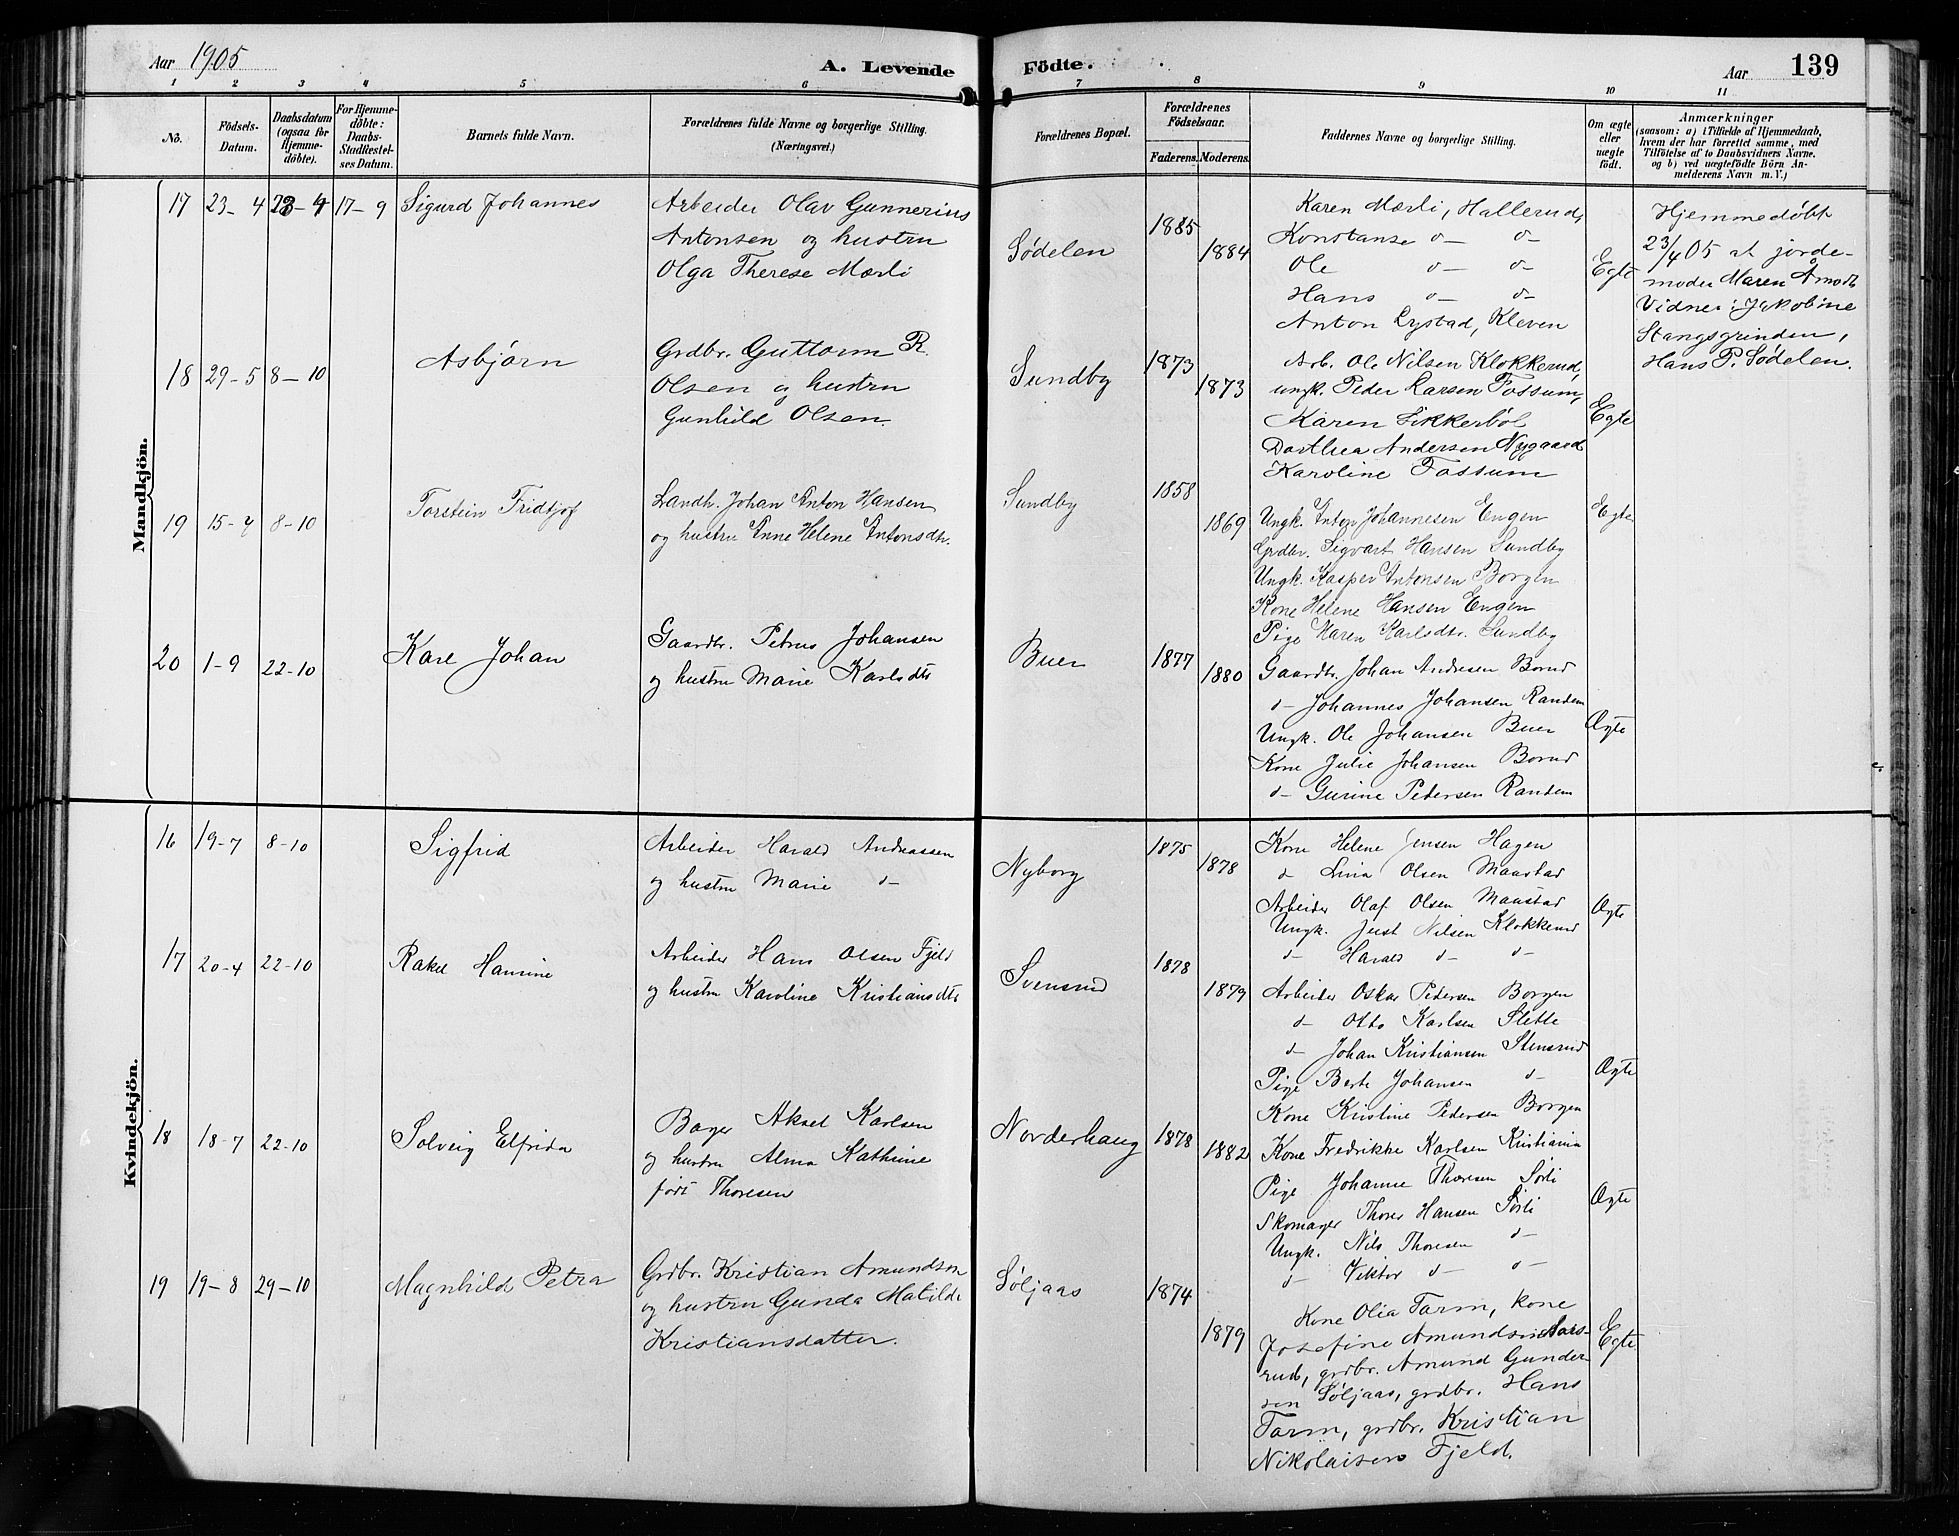 Aar 1905
A. Levende Födte.
Aar 139
1 2 3 4 5 6 7 8 9 10 11
No.
Födsels-
Datum.
Daabsdatum
(ogsaa for
Hjemme-
döbte).
For Hjemme-
döbte:
Daabs-
Stadfæstel-
ses Datum.
Barnets fulde Navn.
Forældrenes fulde Navne og borgerlige Stilling.
(Næringsvei.)
Forældrenes Bopæl.
Forældrenes
Födselsaar.
Faderens. Moderens.
Faddernes Navne og borgerlige Stilling.
Om ægte
eller
uægte
födt.
Anmærkninger
(saasom: a) i Tilfælde af Hjemmedaab,
hvem der har forrettet samme, med
Tilföielse af to Daabsvidners Navne,
og b) ved uægtefödte Börn An-
melderens Navn m. V.)
Mandkjön.
17 23-4 23-4 17-9 Sigurd Johannes
Arbeider Olav Gunnerius
Antonsen og hustru
Olga Therese Mærli
Sødelen
1885
1884
Karen Mærli, Hallerud,
Konstanse d- d-
Ole d- d-
Hans d- d-
Anton Lystad, Kleven
Egte
Hjemmedøbt
23/4 05 at jorde-
moder Maren Åmodt
Vidner: Jakobine
Stangsgrinden,
Hans P. Sødelen.
18 29-5 8-10 Asbjørn
Grdbr. Guttorm R.
Olsen og hustru
Gunhild Olsen.
Sundby
1873
1873
Arb. Ole Nilsen Klokkerud,
ungk. Peder Larsen Fossum,
Karen Sikkerbøl
Dorthea Andersen Nygaard
Karoline Fossum
Egte
19 15-7 8-10 Torstein Fridtjof
Landh. Johan Anton Hansen
og hustru Anne Helene Antonsdtr.
Sundby
1858
1869
Ungk. Anton Johannesen Engen
Grdbr. Sigvart Hansen Sundby
Ungk. Kasper Antonsen Borgen
Kone Helene Hansen Engen
Pige Maren Karlsdtr. Sundby
Egte
20 1-9 22-10 Kare Johan
Gaardbr. Petrus Johansen
og hustru Marie Karlsdtr
Buer
1877
1880
Gaardbr. Johan Andresen Borud
d- Johannes Johansen Randem
Ungk. Ole Johansen Buer
Kone Julie Johansen Borud
d- Gurine Pedersen Randem
Ægte
Kvindekjön.
16 19-7 8-10 Sigfrid
Arbeider Harald Andreassen
og hustru Marie d-
Nyborg
1875
1878
Kone Helene Jensen Hagen
d Lina Olsen Maastad
Arbeider Olaf Olsen Maastad
Ungk. Just Nilsen Klokkerud
d- Harald d- d-
Ægte
17 20-4 22-10 Rakel Hansine
Arbeider Hans Olsen Fjeld
og hustru Karoline Kristiansdtr
Svensrud
1878
1879
Arbeider Oskar Pedersen Borgen
d- Otto Karlsen Slette
d- Johan Kristiansen Stensrud
Pige Berte Johansen d-
Kone Kristine Pedersen Borgen
Ægte
18 18-7 22-10 Solveig Elfrida
Bager Aksel Karlsen
og hustru Alma Kathrine
født Thoresen
Norderhaug
1878
1882
Kone Fredrikke Karlsen Kristiania
Pige Johanne Thoresen Sørli
Skomager Thorer Hansen Sørli
Ungk. Nils Thoresen d-
d- Viktor d- d-
Ægte
19 19-8 29-10 Magnhild Petra
Grdbr. Kristian Amundson
og hustru Gunda Matilde
Kristiansdatter.
Søljaas
1874
1879
Kone Olia Tarm, kone
Josefine Amundsen Aars-
rud, grdbr. Amund Gunder-
sen Søljaas, grdbr. Hans
Tarm, grdbr. Kristian
Nikolaisen Fjeld.
Egte